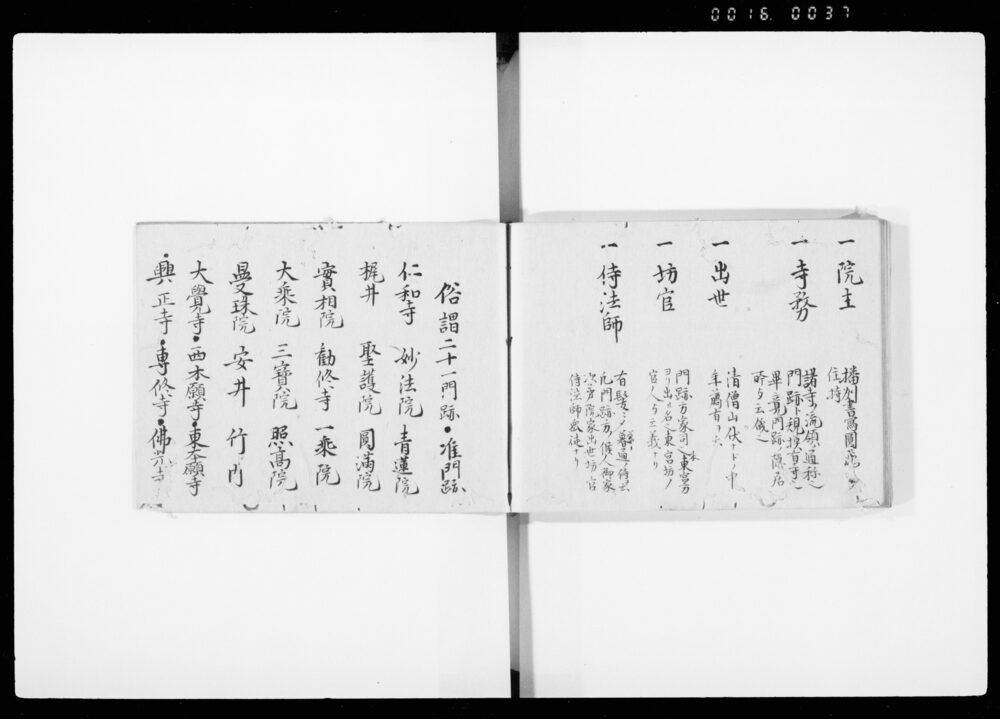 0016 0037
一 院主
播州書寫圓
住持
一 寺務
諸寺ノ流領ノ通称
門跡ト規模有寺
畢竟門跡ノ隠居
所ヲ云
一 出世
清僧山伏ナトノ中
年﨟有ヲ云
一 坊官
門跡方家司
ヨリ出ル名 東宮坊ノ
官人ヲ云義ナリ
一 侍法師
有髪
凡門跡方ノ候人御家
院家出世坊官
侍法師
俗謂二十一門跡・准門跡
仁和寺 妙法院 青蓮院
梶井 聖護院 圓滿院
實相院 勧修寺 一乘院
大乘院 三寶院 照高院
曼珠院 安井 竹門
大覺寺・西本願寺・東本願寺
・興正寺・専修寺・佛光寺